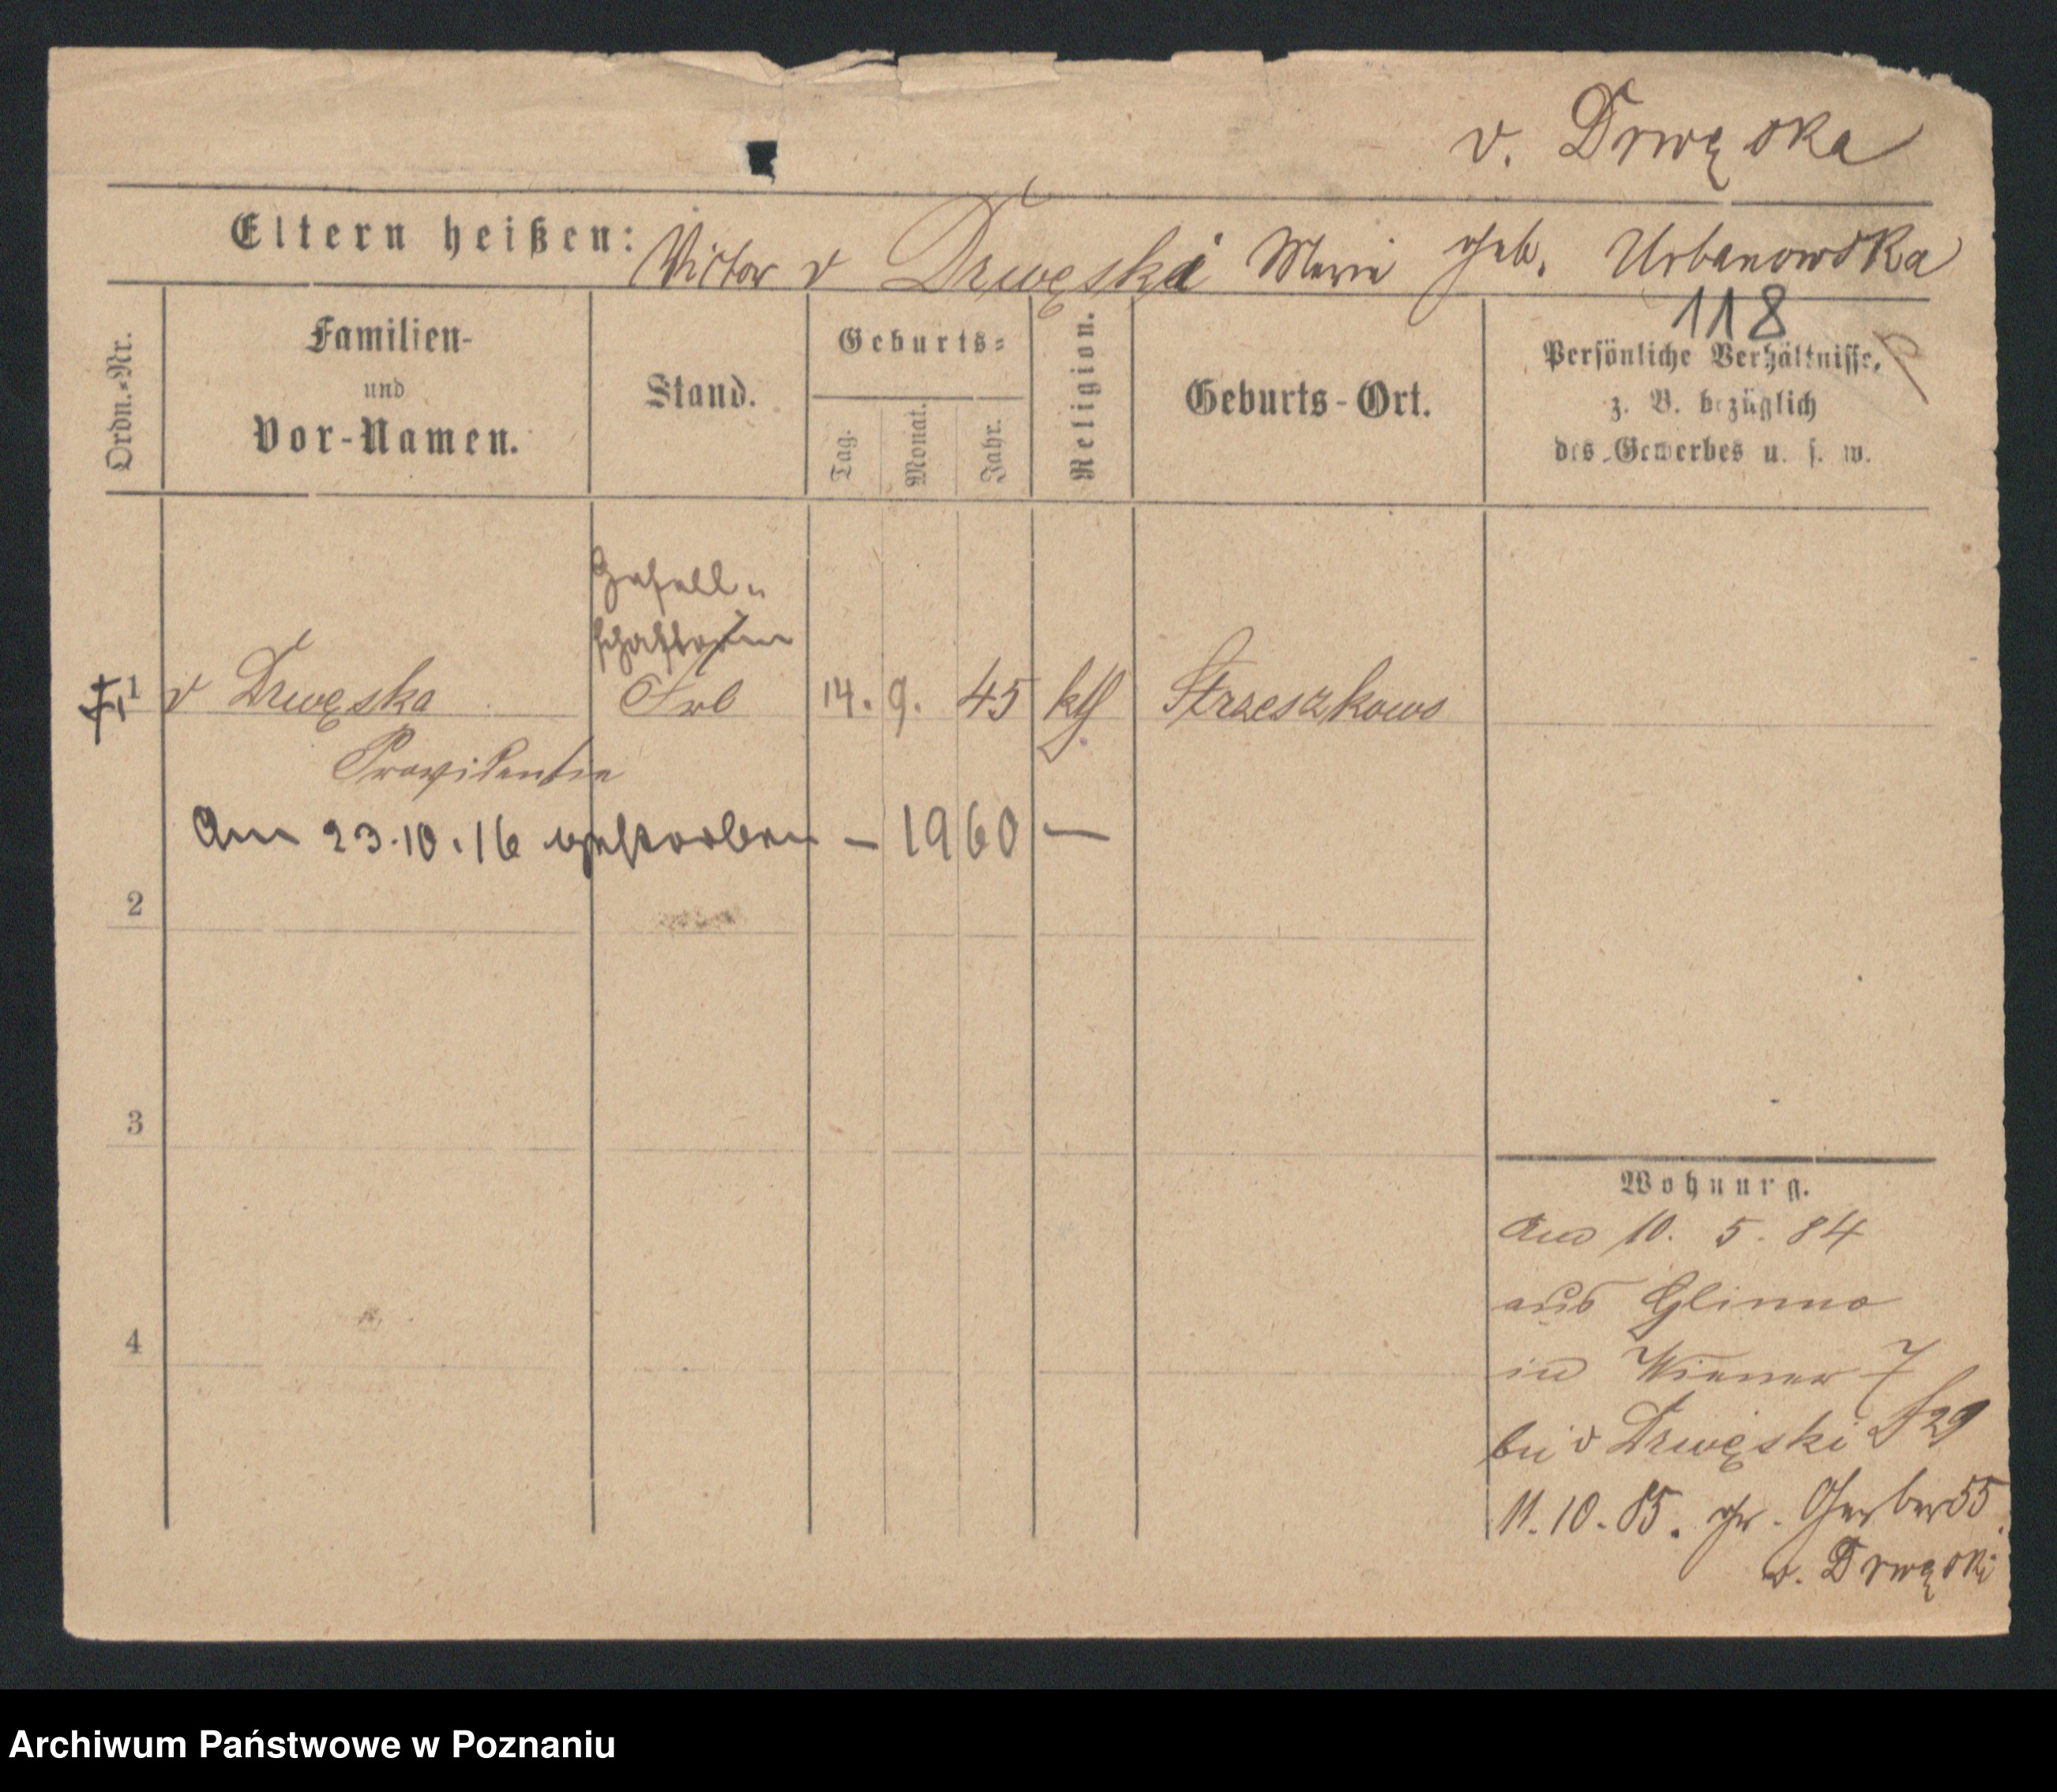 v. Drwęska
Eltern heißen: Victor v Drwęski Marie geb. Urbanowska
118
Ordn.-Nr.
Familien-
und
Vor-Namen.
Stand.
Geburts-
Tag.
Monat.
Jahr.
Religion.
Geburts-Ort.
Persönliche Verhältnisse,
z. B. bezüglich
des Gewerbes u. s. w.
Gesell-
schafterin
1 v Drwęska Frl 14. 9. 45 kth Strzeszkowo
Providentia
Am 23.10.16 gestorben – 1960 –
2
3
4
Wohnung.
10. 5. 84
aus Glinno
in Wiener 7
bei v Drwęski
11.10.85. gr. Gerber 55
v. Drwęski
Archiwum Państwowe w Poznaniu